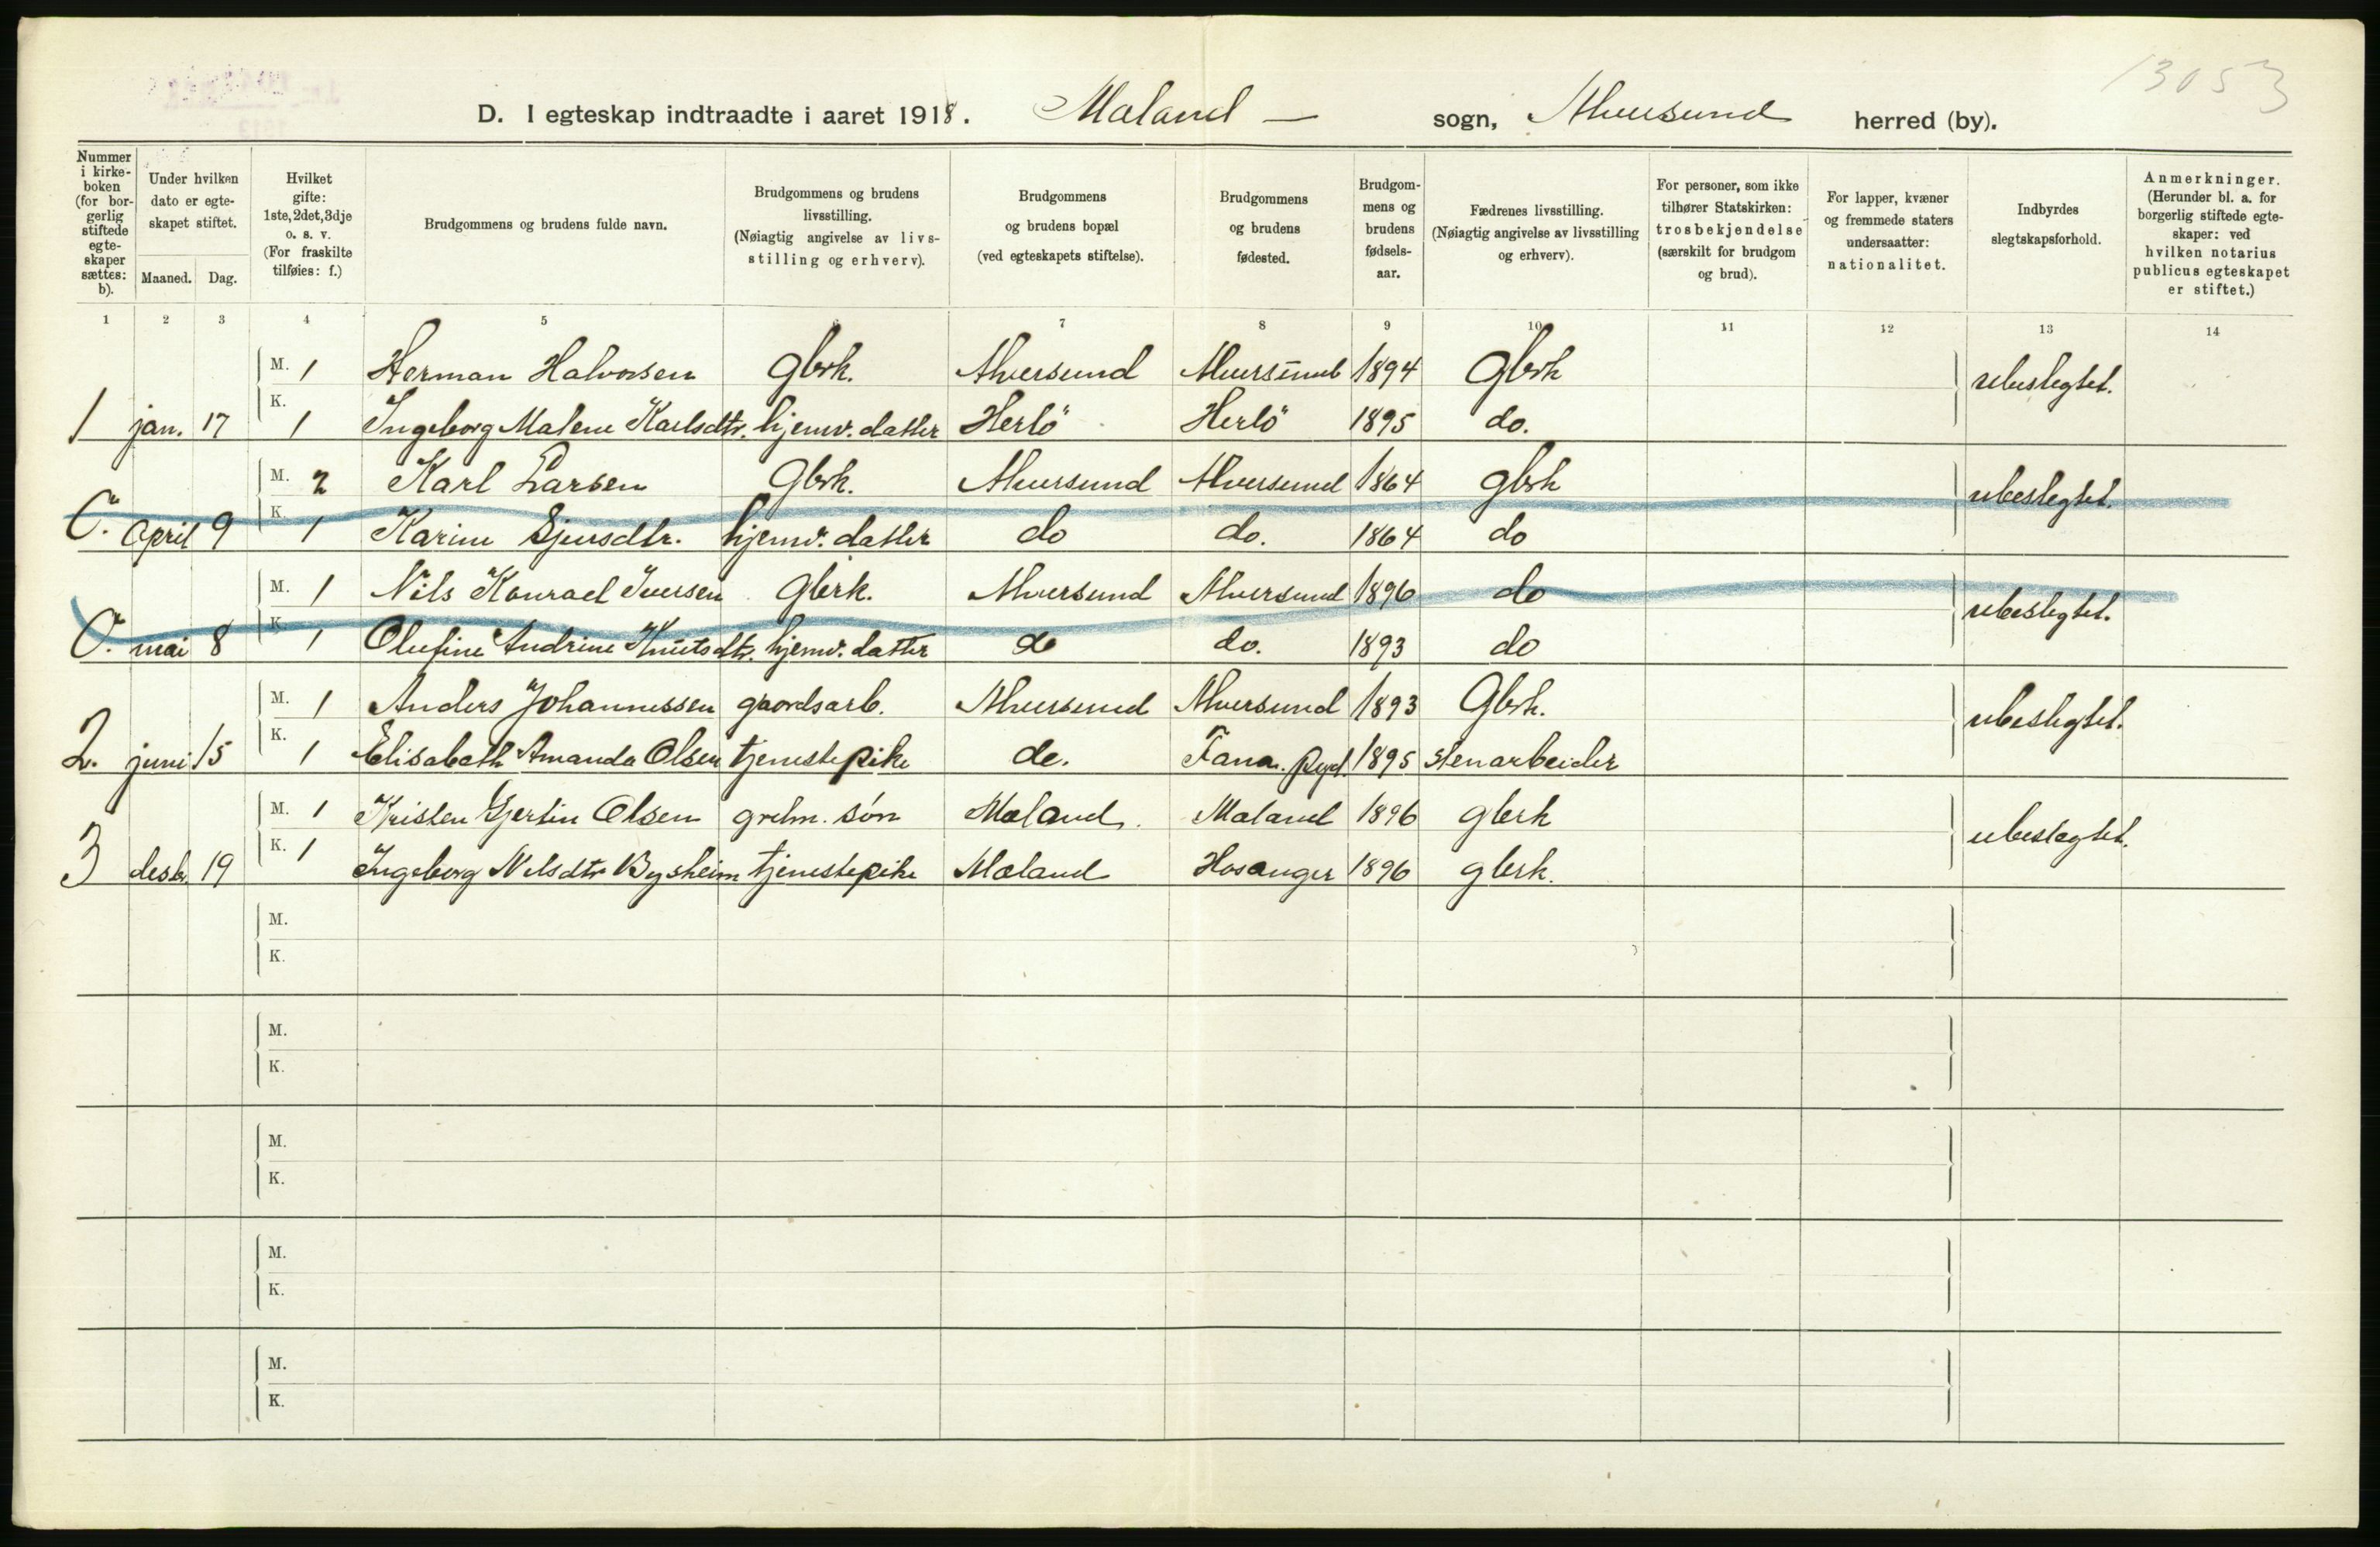 13053
D. I egteskap indtraadte i aaret 1918. Mæland — sogn, Alversund herred (by).
Nummer i kirkeboken (for borgerlig stiftede egteskaper sættes: b).
Under hvilken dato er egteskapet stiftet.
Maaned. Dag.
Hvilket gifte: 1ste, 2det, 3dje o. s. v. (For fraskilte tilføies: f.)
Brudgommens og brudens fulde navn.
Brudgommens og brudens livsstilling. (Nøiagtig angivelse av livsstilling og erhverv).
Brudgommens og brudens bopæl (ved egteskapets stiftelse).
Brudgommens og brudens fødested.
Brudgommens og brudens fødselsaar.
Fædrenes livsstilling. (Nøiagtig angivelse av livsstilling og erhverv).
For personer, som ikke tilhører Statskirken: trosbekjendelse (særskilt for brudgom og brud).
For lapper, kvæner og fremmede staters undersaatter: nationalitet.
Indbyrdes slegtskapsforhold.
Anmerkninger. (Herunder bl. a. for borgerlig stiftede egteskaper: ved hvilken notarius publicus egteskapet er stiftet.)
1 2 3 4 5 6 7 8 9 10 11 12 13 14
M. 1 Herman Halvorsen gbrk. Alversund Alversund 1894 Gbrk ubeslegtet.
1 jan. 17 K. 1 Ingeborg Malene Karlsdtr. hjemv. datter Herlö Herlö 1895 do.
M. 2 Karl Larsen Gbrk. Alversund Alversund 1864 gbrk ubeslegtet.
0. April 9 K. 1 Karine Sjursdtr. hjemv. datter do do. 1864 do
M. 1 Nils Konrad Iversen Gbrk. Alversund Alversund 1896 do ubeslegtet.
0. mai 8 K. 1 Olufine Andrine Knutsdtr. hjemv. datter do do. 1893 do
M. 1 Anders Johannessen gaardsarb. Alversund Alversund 1893 Gbrk. ubeslegtet.
2. juni 15 K. 1 Elisabeth Amanda Olsen tjenestepike do. Fana. 1895 stenarbeider
M. 1 Kristen Gjertin Olsen grdm. søn Mæland. Mæland 1896 gbrk ubeslegtet.
3 desbr. 19 K. 1 Ingeborg Nilsdtr Bysheim tjenestepike Mæland Hosanger 1896 gbrk.
M.
K.
M.
K.
M.
K.
M.
K.
M.
K.